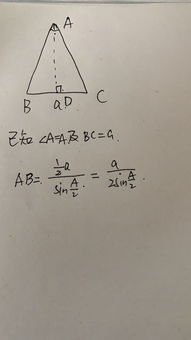 A
B a D C
已知 ∠A=A及 BC=a.
AB= \frac{\frac{1}{2}a}{\sin\frac{A}{2}} = \frac{a}{2\sin\frac{A}{2}}.